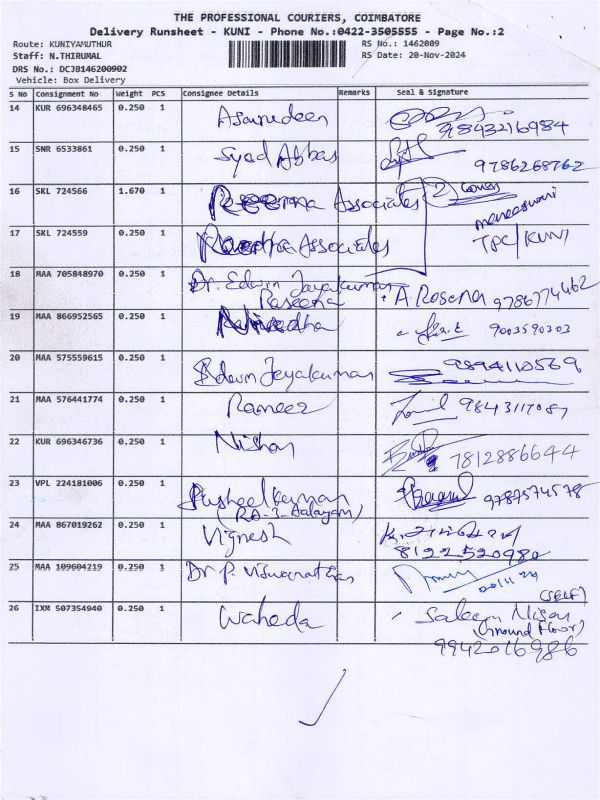 THE PROFESSIONAL COURIERS, COIMBATORE
Delivery Runsheet - KUNI - Phone No.:0422-3505555 - Page No.:2
Route: KUNIYAMUTHUR RS No.: 1462009
Staff: N.THIRUMAL RS Date: 20-Nov-2024
DRS No.: DCJB146200902
Vehicle: Box Delivery
S No Consignment No Weight PCS Consignee Details Remarks Seal & Signature
14 KUR 696348465 0.250 1
9843216984
15 SNR 6533861 0.250 1 Syed Abbas
9786268762
16 SKL 724566 1.670 1 Associates 2
17 SKL 724559 0.250 1 Associates TPC/KUNI
18 MAA 705848970 0.250 1 Dr. Edwin Jayakumar
Raseena A. Rosena 9786774462
19 MAA 866952565 0.250 1
9003590303
20 MAA 575559615 0.250 1 Edwin Jeyakumar 9894110569
21 MAA 576441774 0.250 1 Rameez 9843117087
22 KUR 696346736 0.250 1 Nishan
7812886644
23 VPL 224181006 0.250 1 Susheelkumar
9787574578
24 MAA 867019262 0.250 1 Vignesh
8122520980
25 MAA 109604219 0.250 1 Dr P. Viswanathan 20/11/24
26 IXM 507354940 0.250 1 Waheda (SELF)
Saleem Nisar
(Ground Floor)
9942016986